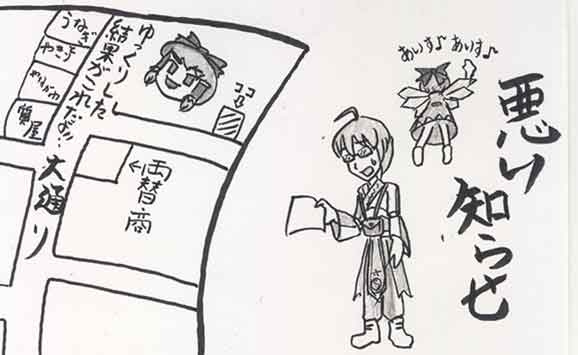 悪い知らせ
あいす♪あいす♪
ココ
ゆっくりした
結果がこれだよ!!
うなぎ
質屋
大通り
←両替商